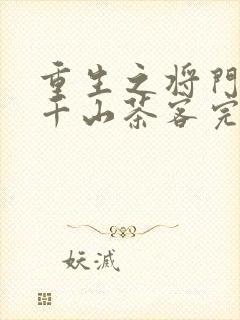 重生之将門
千山茶客完
妖滅